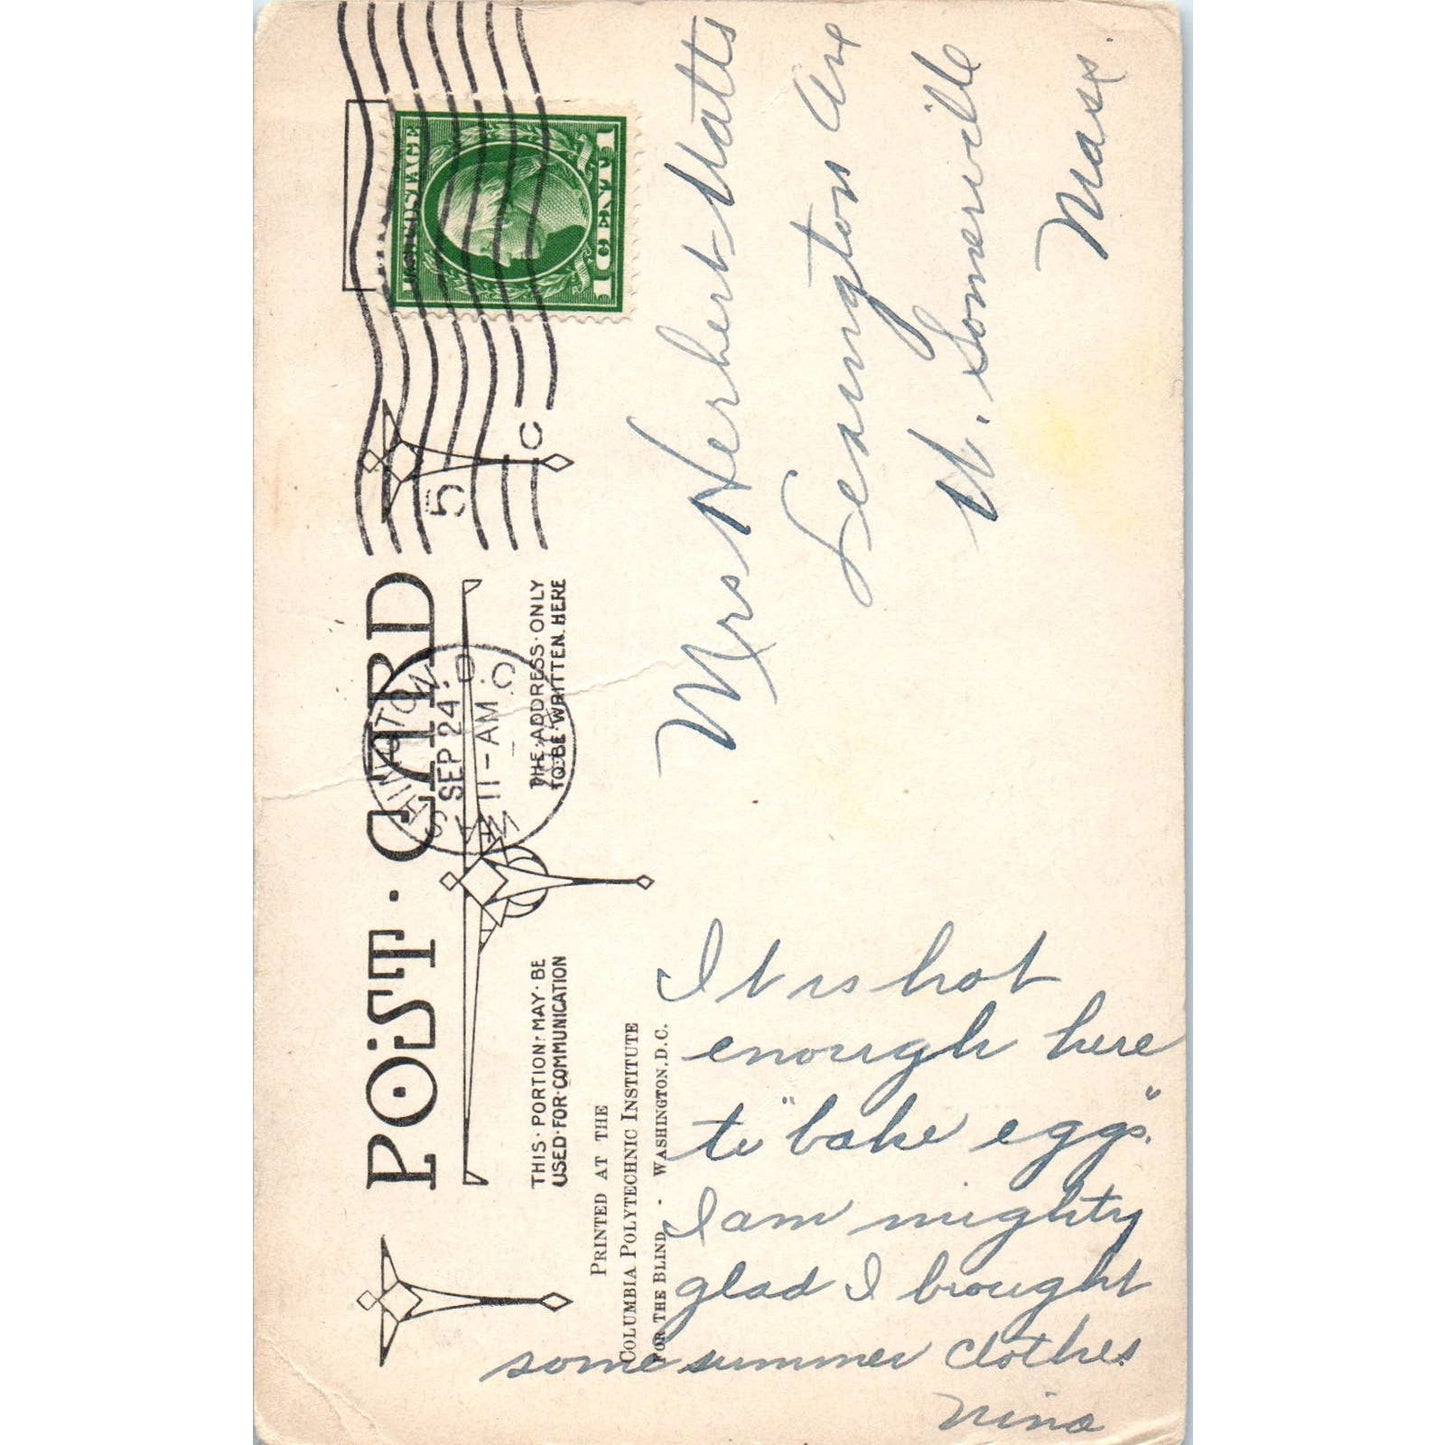 POST·CARD
WASHINGTON, D.C.
SEP 24
11-AM
5
C
U.S. POSTAGE
1 CENT 1
THIS·PORTION·MAY·BE
USED·FOR·COMMUNICATION
THE·ADDRESS·ONLY
TO·BE·WRITTEN·HERE
PRINTED AT THE
COLUMBIA POLYTECHNIC INSTITUTE
FOR THE BLIND - WASHINGTON, D.C.
It is hot
enough here
to "bake eggs".
I am mighty
glad I brought
some summer clothes.
Nina
Mrs Herbert Watts
Lexington Ave
W. Somerville
Mass.